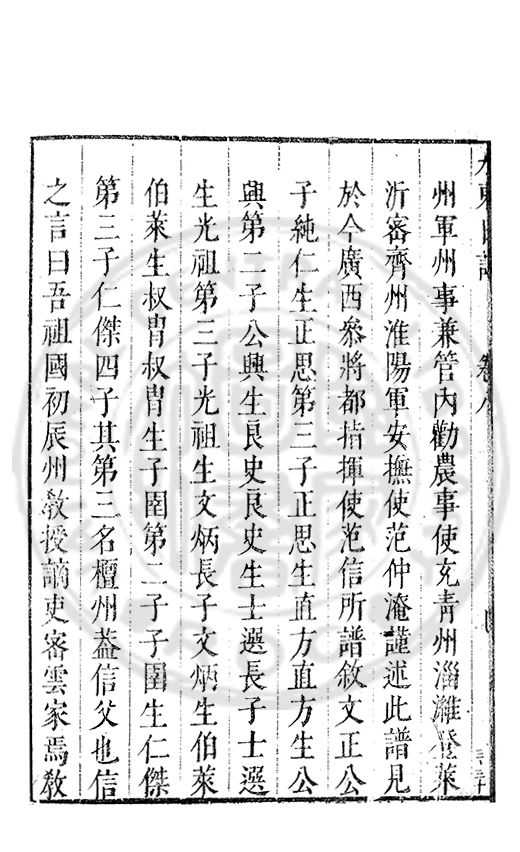 州軍州事兼管內勸農事使充青州淄濰登萊
沂密齊州淮陽軍安撫使范仲淹謹述此譜見
於今廣西叅將都指揮使范信所譜敘文正公
子純仁生正思第三子正思生直方直方生公
興第二子公興生良史良史生士選長子士選
生光祖第三子光祖生文炳長子文炳生伯萊
伯萊生叔胄叔胄生子圉第二子子圉生仁傑
第三子仁傑四子其第三名檀州葢信父也信
之言曰吾祖國初辰州敎授謫吏密雲家焉敎